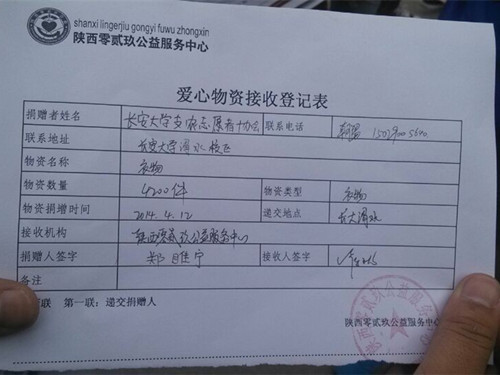 shanxi lingerjiu gongyi fuwu zhongxin
陕西零贰玖公益服务中心
爱心物资接收登记表
捐赠者姓名 长安大学支农志愿者协会 联系电话
联系地址 长安大学渭水校区
物资名称 衣物
物资数量 4200件 物资类型 衣物
物资捐增时间 2014.4.12 递交地点 长大渭水
接收机构 陕西零贰玖公益服务中心
捐赠人签字 接收人签字
备注
联 第一联：递交捐赠人
陕西零贰玖公益服务中心